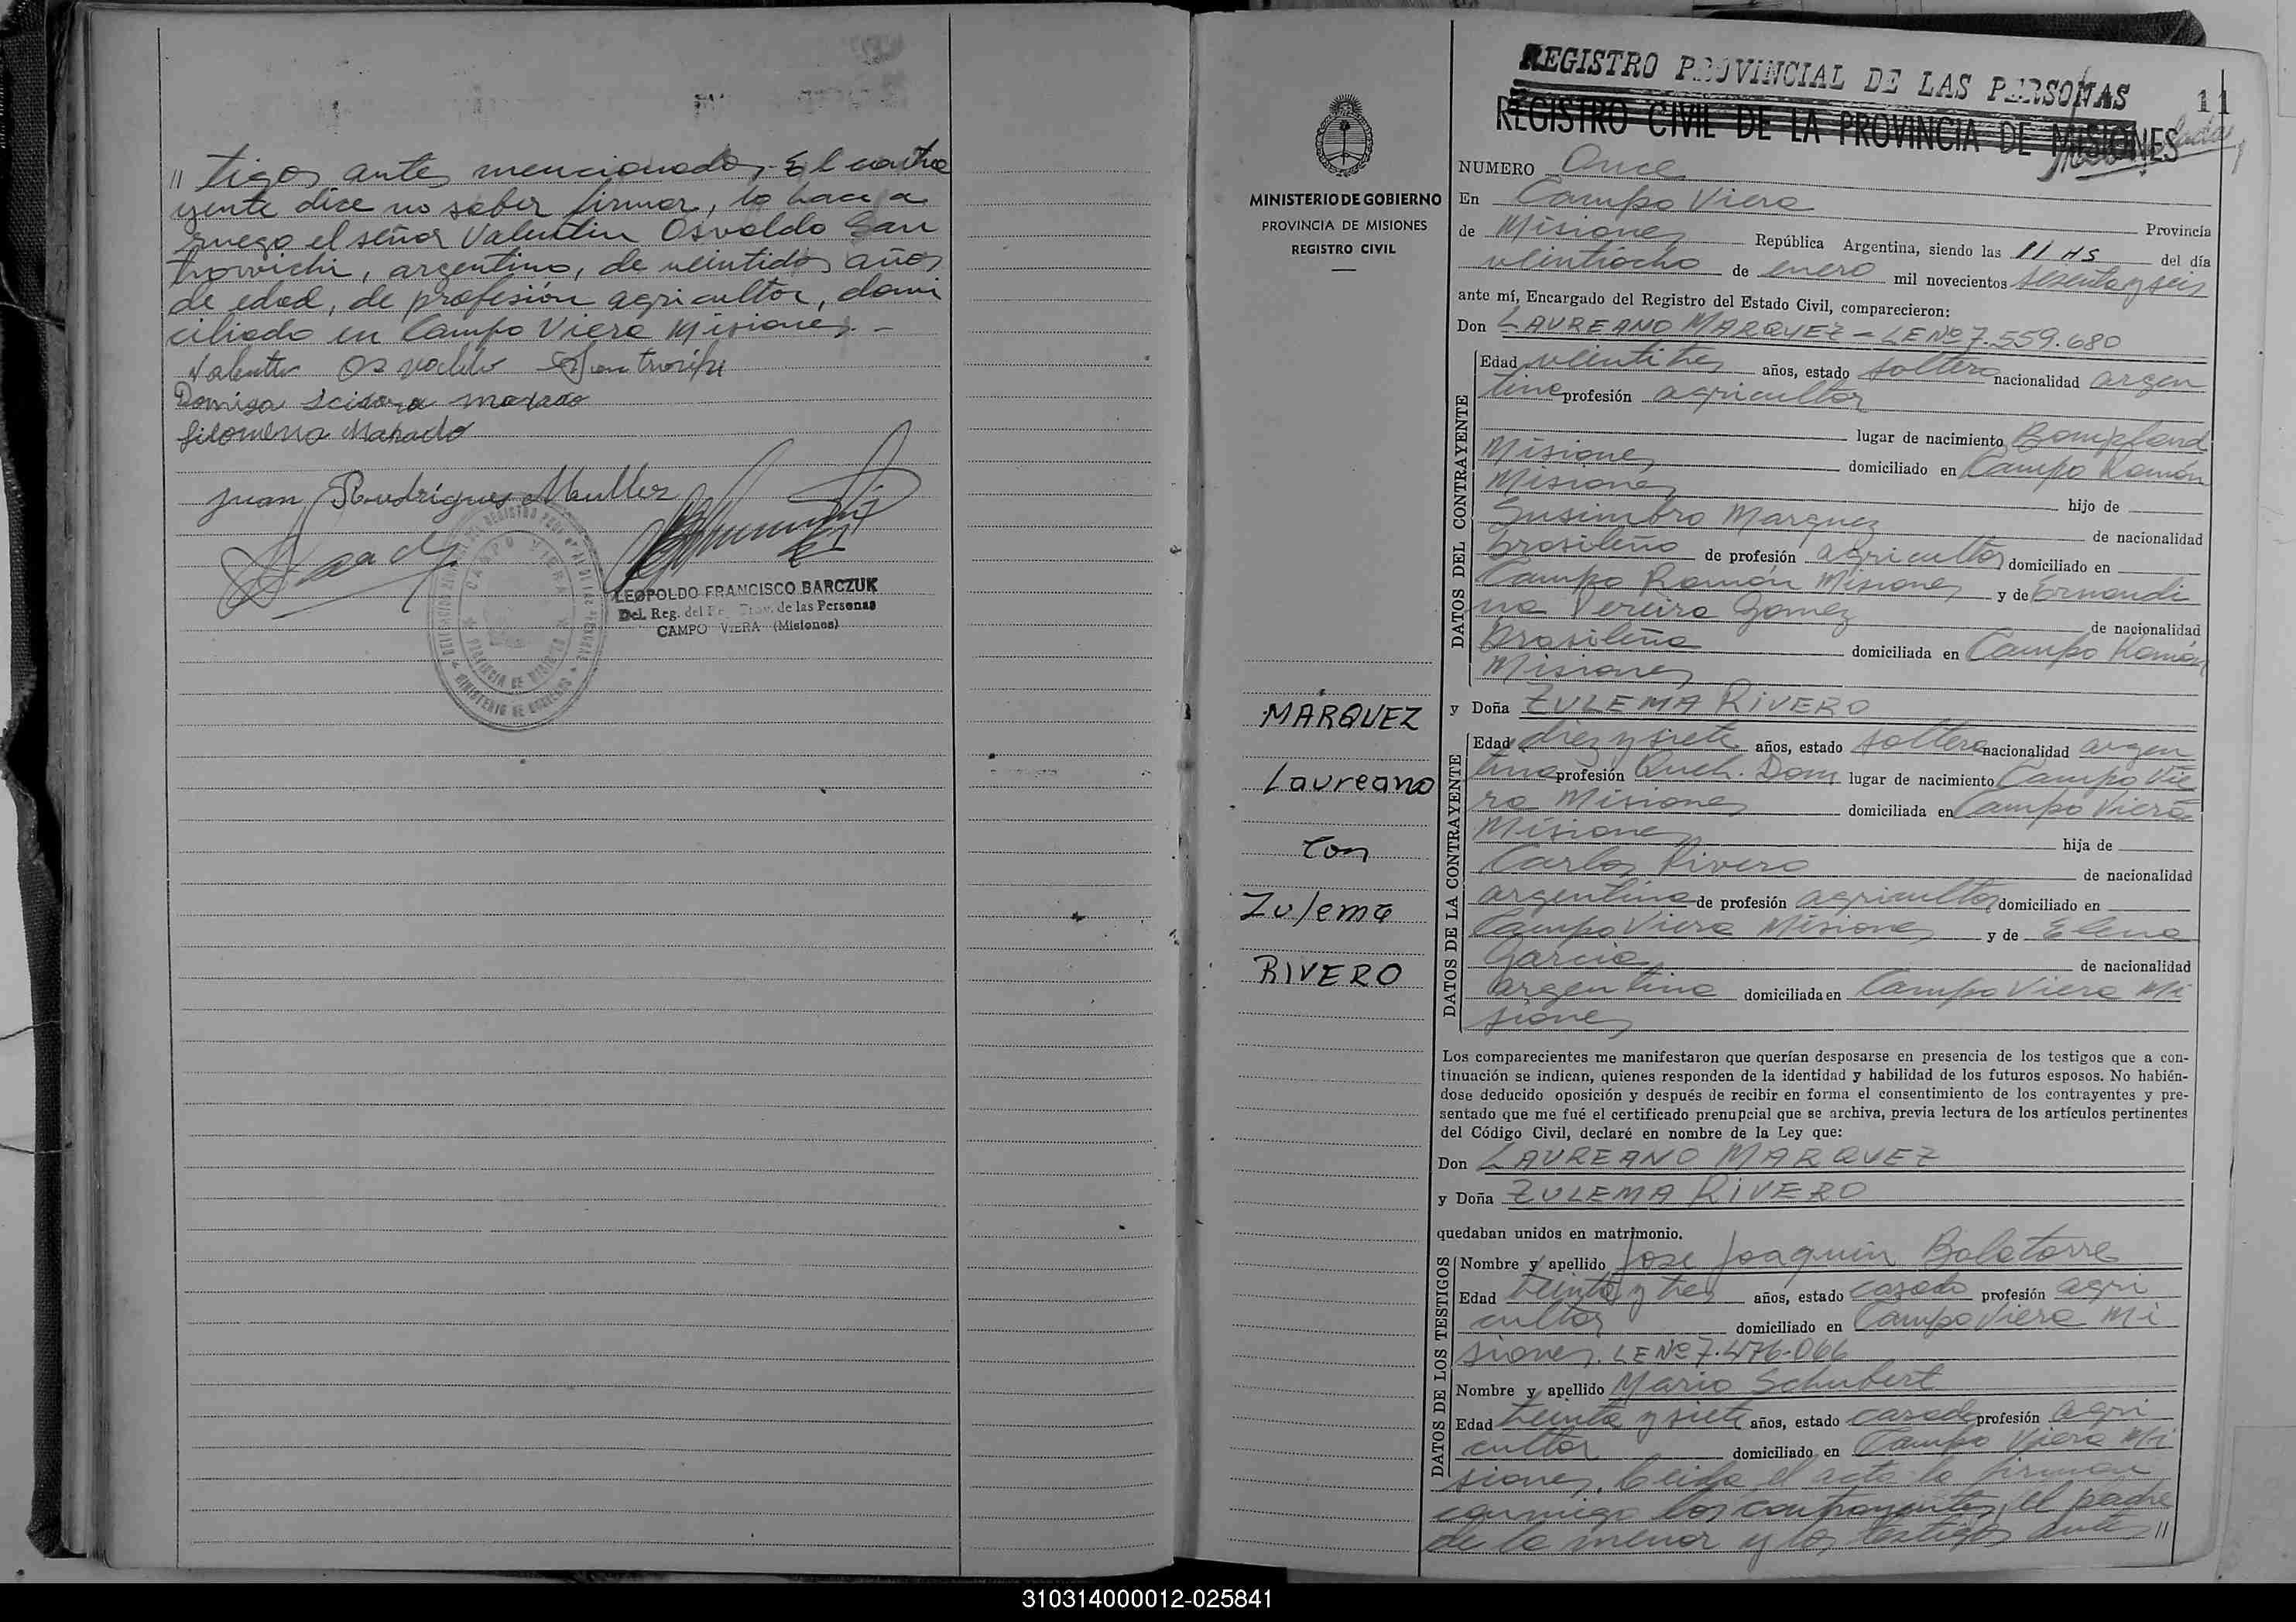 // tigos antes mencionados. El contra
yente dice no saber firmar, lo hace a
ruego el señor Valentin Osvaldo San
trovichi, argentino, de veintidos años
de edad, de profesión agricultor, domi
ciliado en Campo Viera Misiones.-
Valentin Osvaldo
Filomena Machado
Juan Rodrigues Muller
CAMPO VIERA
PROVINCIA DE MISIONES
MINISTERIO DE GOBIERNO
LEOPOLDO FRANCISCO BARCZUK
Del. Reg. del Prov. de las Personas
CAMPO VIERA (Misiones)
MINISTERIO DE GOBIERNO
PROVINCIA DE MISIONES
REGISTRO CIVIL
MARQUEZ
Laureano
con
Zulema
RIVERO
REGISTRO PROVINCIAL DE LAS PERSONAS
11
REGISTRO CIVIL DE LA PROVINCIA DE MISIONES
NUMERO Once
En Campo Viera
Provincia
de Misiones República Argentina, siendo las 11 HS del día
veintiocho de enero mil novecientos sesenta y seis
ante mí, Encargado del Registro del Estado Civil, comparecieron:
Don LAUREANO MARQUEZ - LE Nº 7.559.680
DATOS DEL CONTRAYENTE
Edad veintitres años, estado soltero nacionalidad argen
tina profesión agricultor
lugar de nacimiento Bompland
Misiones domiciliado en Campo Ramón
Misiones hijo de
Marquez de nacionalidad
brasileño de profesión agricultor domiciliado en
Campo Ramón Misiones y de Ernandi
na Pereira Gomez de nacionalidad
brasileña domiciliada en Campo Ramón
Misiones
y Doña ZULEMA RIVERO
DATOS DE LA CONTRAYENTE
Edad diez y siete años, estado soltera nacionalidad argen
tina profesión Queh. Dom. lugar de nacimiento Campo Vie
ra Misiones domiciliada en Campo Viera
Misiones hija de
Carlos Rivero de nacionalidad
argentina de profesión agricultor domiciliado en
Campo Viera Misiones y de Elena
Garcia de nacionalidad
argentina domiciliada en Campo Viera Mi
siones
Los comparecientes me manifestaron que querían desposarse en presencia de los testigos que a con-
tinuación se indican, quienes responden de la identidad y habilidad de los futuros esposos. No habién-
dose deducido oposición y después de recibir en forma el consentimiento de los contrayentes y pre-
sentado que me fué el certificado prenupcial que se archiva, previa lectura de los artículos pertinentes
del Código Civil, declaré en nombre de la Ley que:
Don LAUREANO MARQUEZ
y Doña ZULEMA RIVERO
quedaban unidos en matrimonio.
DATOS DE LOS TESTIGOS
Nombre y apellido Jose Joaquin Balatorre
Edad treinta y tres años, estado casado profesión agri
cultor domiciliado en Campo Viera Mi
siones. LE Nº 7.476.066
Nombre y apellido Mario Schubert
Edad treinta y siete años, estado casado profesión agri
cultor domiciliado en Campo Viera Mi
siones. Leida el acta la firman
conmigo los contrayentes, el padre
de la menor y los testigos antes //
310314000012-025841